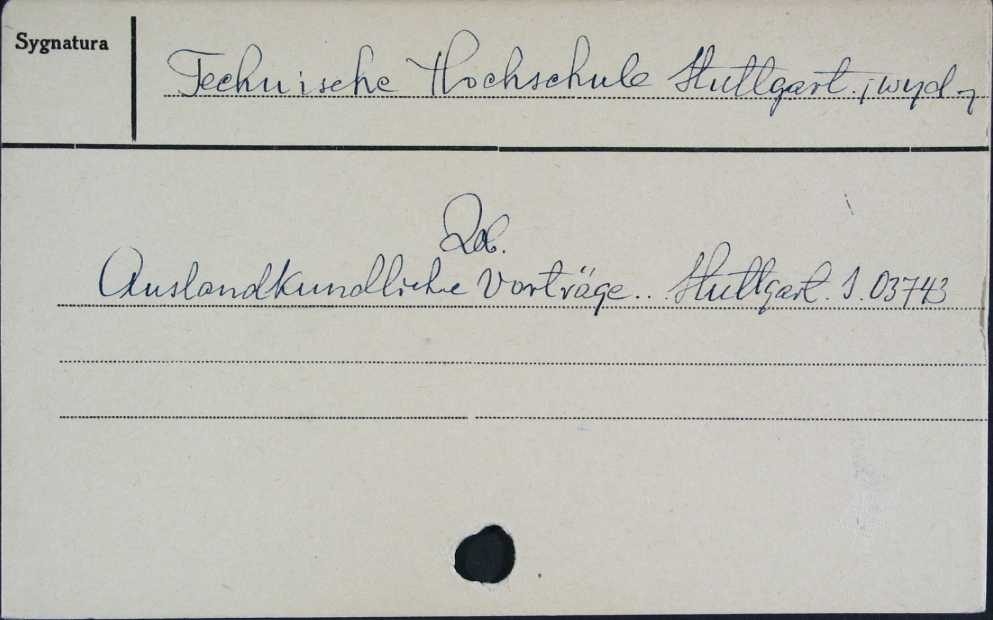 Sygnatura
Technische Hochschule Stuttgart. ; wyd.
Zob.
Auslandkundliche Vorträge.. Stuttgart. S. 03743